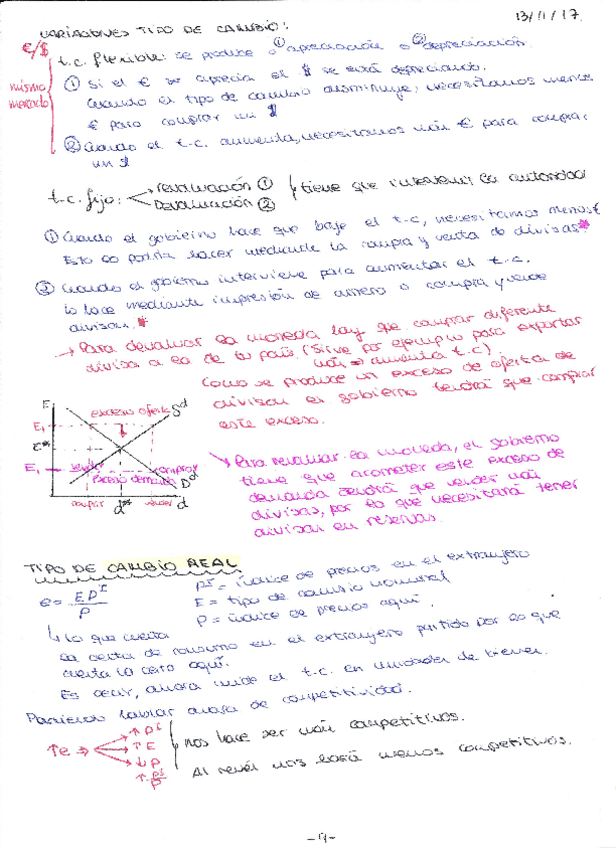 13/11/17
VARIACIONES TIPO DE CAMBIO:
€/$
mismo mercado
t.c. flexible: se produce o ① apreciación o ② depreciación.
① Si el € se aprecia el $ se está depreciando.
Cuando el tipo de cambio disminuye, necesitamos menos
€ para comprar un $
② Cuando el t.c. aumenta, necesitamos más € para comprar
un $
t.c. fijo: revaluación ①
Devaluación ②
tiene que intervenir la autoridad
① Cuando el gobierno hace que baje el t.c, necesitamos menos €
Esto se podría hacer mediante la compra y venta de divisas *
② Cuando el gobierno interviene para aumentar el t.c.
lo hace mediante impresión de dinero o compra y vende
divisas. *
→ Para devaluar la moneda hay que comprar diferente
divisa a la de tu país. (Sirve por ejemplo para exportar
más ⇒ aumenta t.c)
Como se produce un exceso de oferta de
divisas el gobierno tendrá que comprar
este exceso.
E
exceso oferta
Sd
E1
E**
E1
vender
comprar
exceso demanda
Dd
comprar
d**
vender
d
Para revaluar la moneda, el gobierno
tiene que acometer este exceso de
demanda tendrá que vender más
divisas, por lo que necesitará tener
divisas en reservas.
TIPO DE CAMBIO REAL
e = EP^I / P
P^I = índice de precios en el extranjero
E = tipo de cambio nominal
P = índice de precios aquí.
↳ Lo que cuesta
la cesta de consumo en el extranjero partido por lo que
cuesta la cesta aquí.
Es decir, ahora mide el t.c. en unidades de bienes.
Podemos hablar ahora de competitividad.
↑e ⇒
↑ P^I
↑ E
↓ P
↑ P^I/P
nos hace ser más competitivos.
Al revés nos hará menos competitivos.
-4-